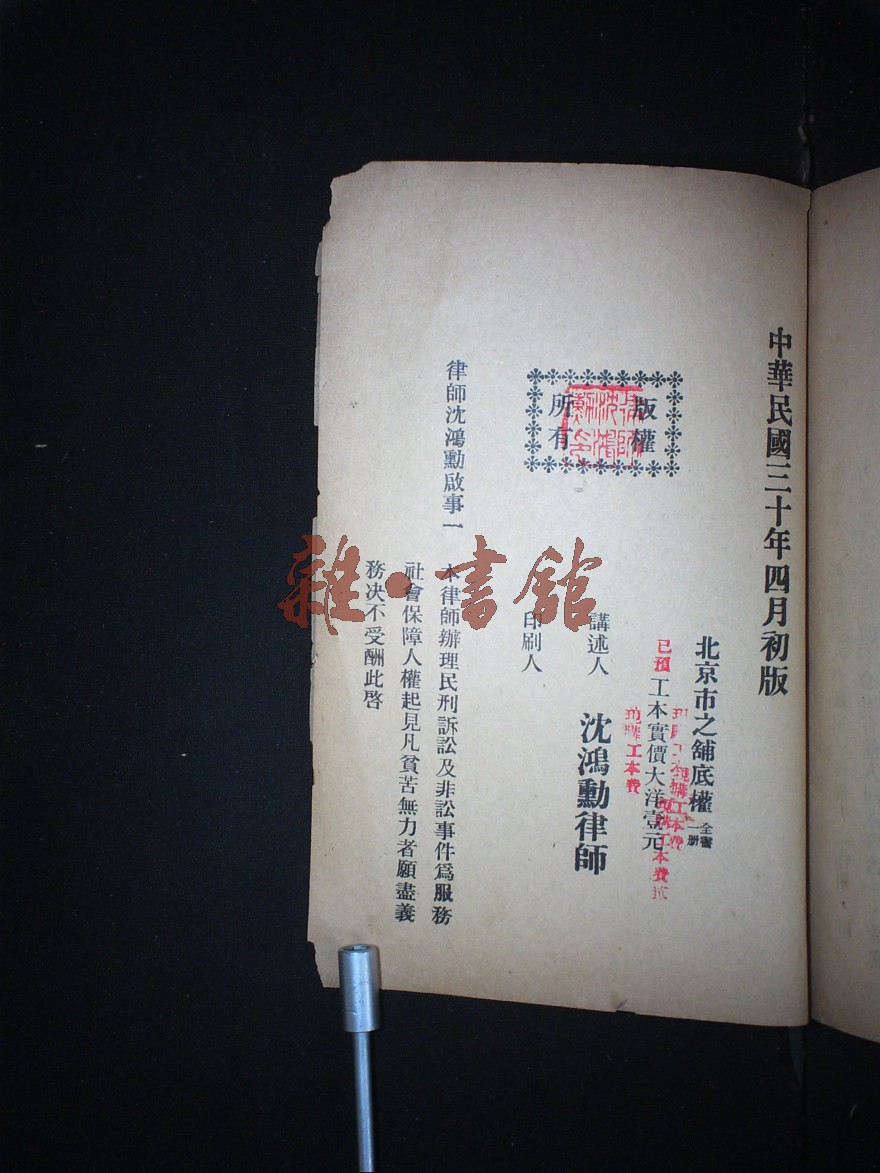 中華民國三十年四月初版
北京市之舖底權 全書一册
工本實價大洋壹元
已預
現購工本費
現購工本費
現購工本費貳
版權
所有
律師沈鴻勳印
講述人 沈鴻勳律師
印刷人
律師沈鴻勳啟事一
本律師辦理民刑訴訟及非訟事件爲服務
社會保障人權起見凡貧苦無力者願盡義
務决不受酬此啓
雜·書館